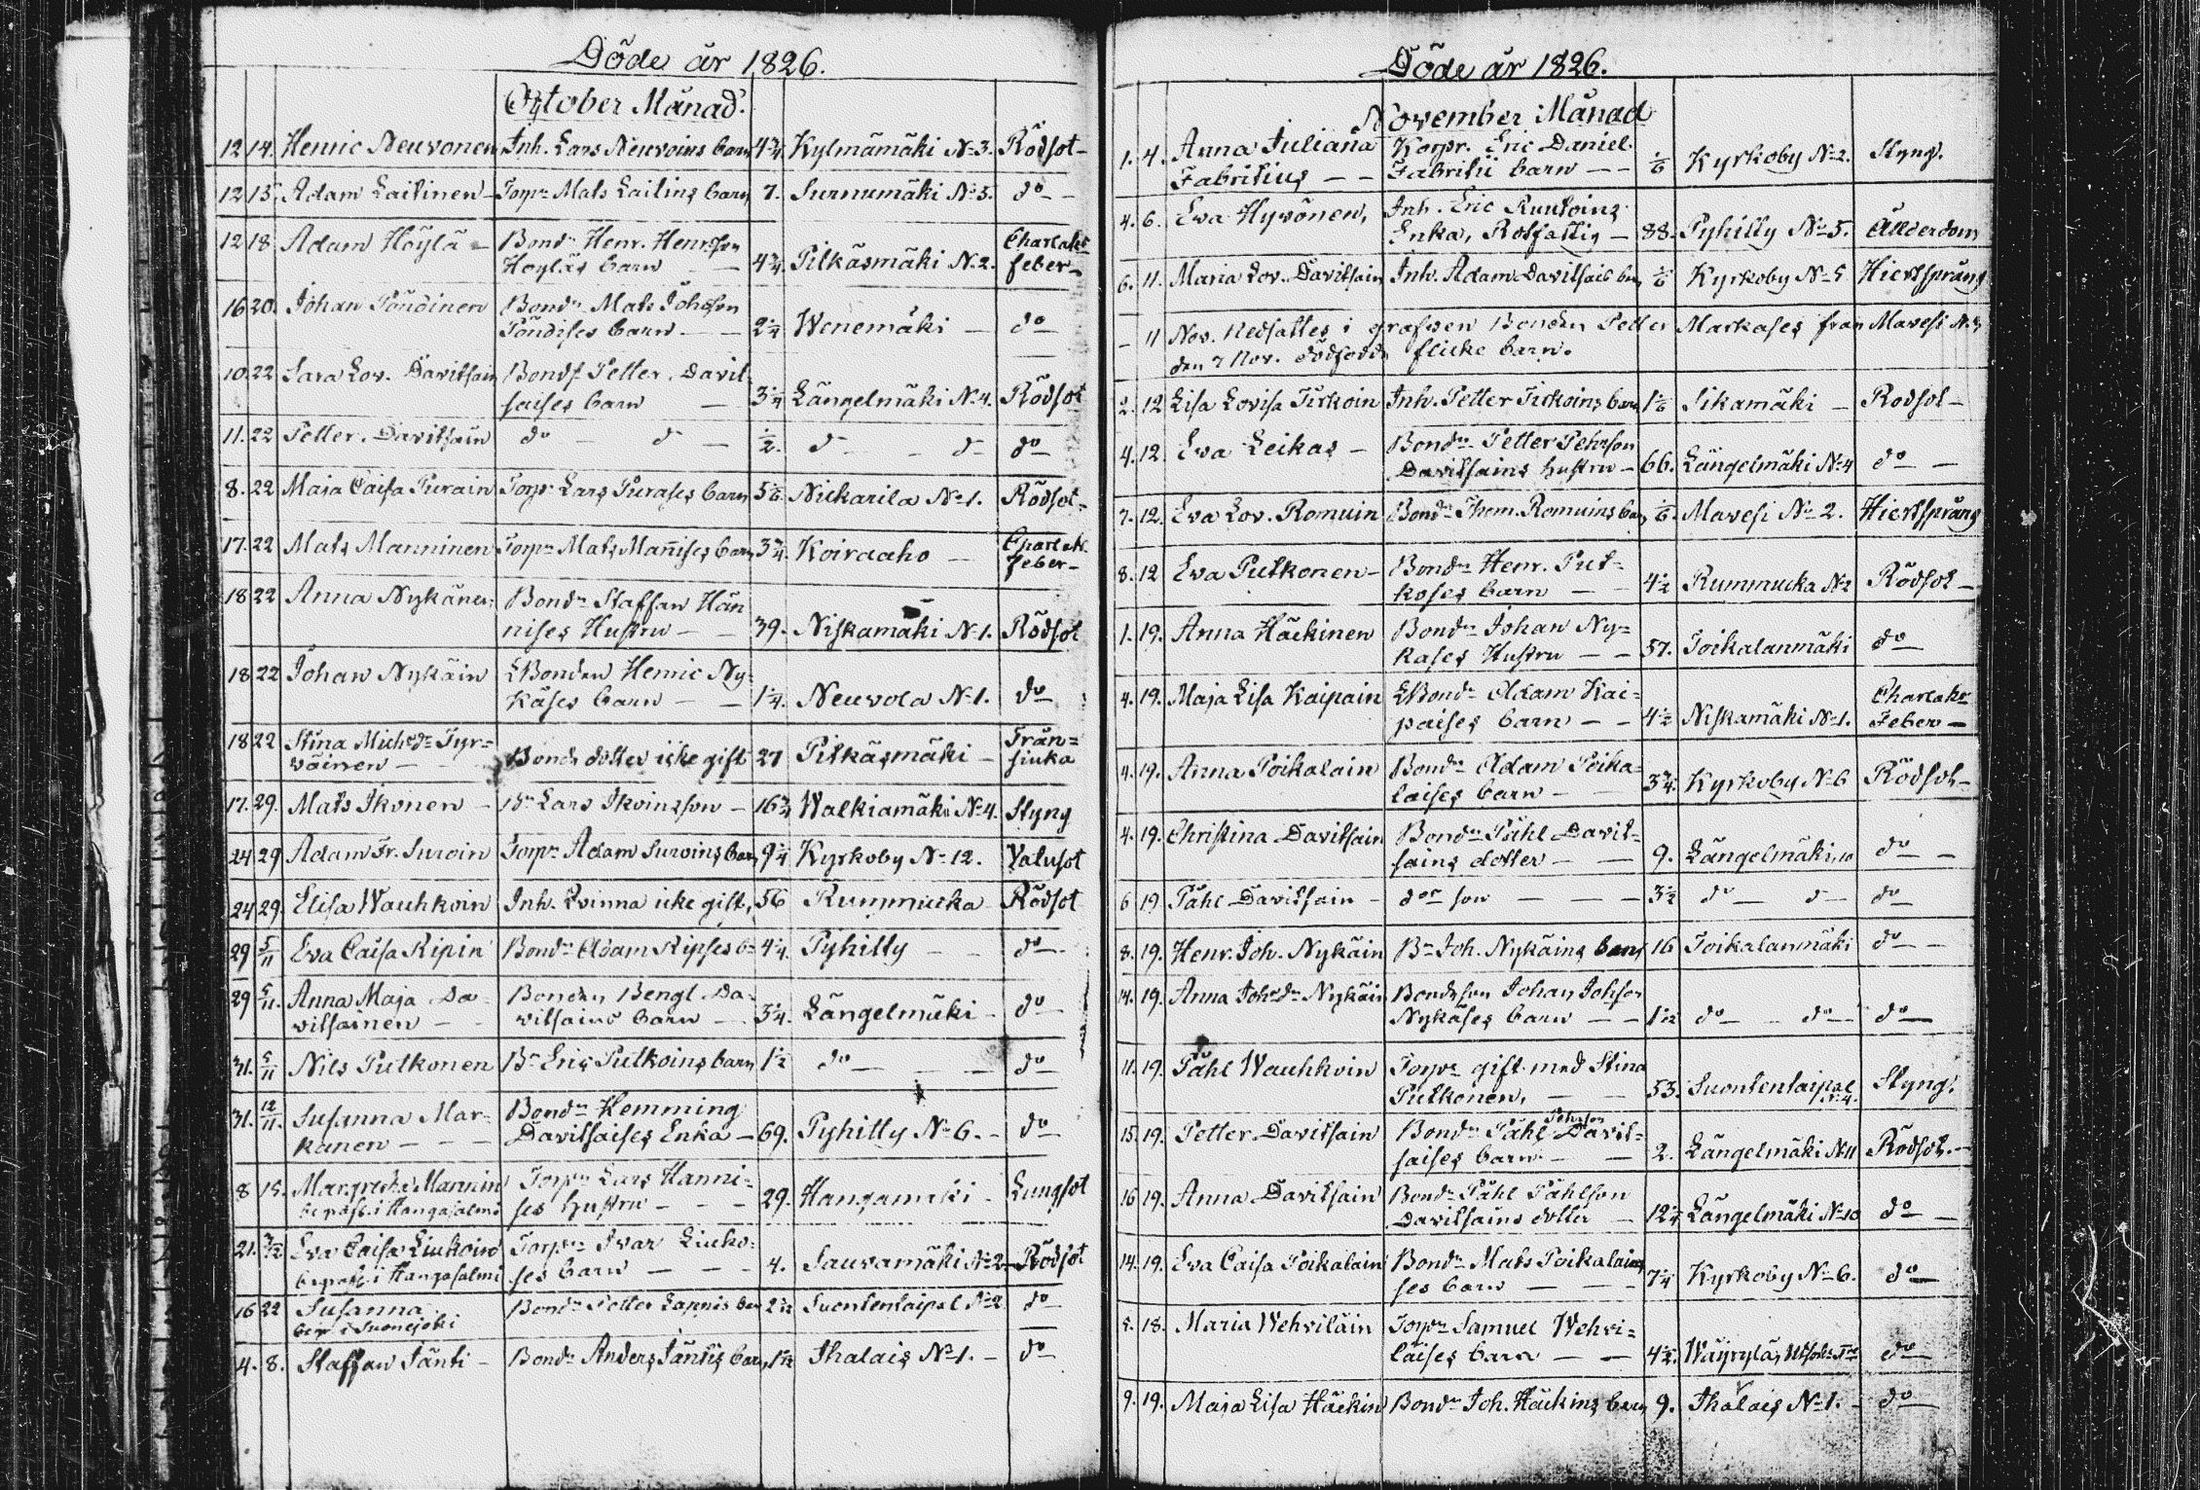 Döde år 1826.
October Månad.
12 14. Henric Neuvonen Inh. Lars Neuvoins barn 4 3/4 Kylmämäki No 3. Rödsot
12 15. Adam Laitinen Torpr Mats Laitins barn 7. Surnumäki No 5. do
12 18 Adam Höylä Bondn Henr. Henrsson
Höyläs barn 4 3/4 Pitkäsmäki N. 2. Charlaks
feber
16 20. Johan Pöndinen Bondn Mats Johsson
Pöndises barn 2 1/4 Wenemäki do
10. 22 Sara Lov. Davitsain Bonds Petter Davit-
saises barn 3 1/4 Längelmäki N. 4. Rödsot
11. 22 Petter Davitsain do d 1/2. d d do
8. 22 Maja Caisa Purain Torpr Lars Purases barn 5 1/6 Niskarila No 1. Rödsot
17. 22 Mats Manninen Torpr Mats Mañises barn 3 3/4. Koiraaho Charlaks
feber
18 22 Anna Nykänen Bondn Staffan Hän
nises Hustru 39. Niskamäki N. 1. Rödsot
18 22 Johan Nykäin Bonden Henric Ny-
käses barn 1 1/4. Neuvola N. 1. do
18 22 Stina Michsdr Tyr=
väinen Bonds dotter icke gift 27 Pitkäsmäki Trån=
siuka
17. 29. Mats Ikonen Bn Lars Ikoins son 16 3/4 Walkiamäki No 4. Styng
24 29 Adam Fr. Suroin Torpr Adam Suroins barn 9 1/4 Kyrkoby No 12. Valusot
24 29. Elisa Wauhkoin Inh. Qvinna icke gift, 56 Rummucka Rödsot
29 5/11 Eva Caisa Ripin Bondn Adam Ripses b 4 1/4. Pyhitty do
29 5/11. Anna Maja Da-
vitsainen Bonden Bengt Da-
vitsains barn 3 1/4. Längelmäki do
31. 5/11 Nils Putkonen Bn Eric Putkoins barn 1 1/2 do do
31. 12/11. Susanna Mar-
kanen Bondn Hemming
Davitsaises Enka 69. Pyhitty No 6. do
8 15. Margretha Mannin
begrafv. i Hangasalmi Torpn Lars Hanni-
ses hustru 29. Hangamäki Lungsot
21. Eva Caisa Liukoin
begraf. i Hangasalmi Torprn Ivar Liuko-
ses barn 4. Sauvamäki No 2 Rödsot
16 22 Susanna
begr i Suonejoki Bondn Petter Lapnis barn Suontentaipal No 2 do
4. 8. Staffan Jänti Bondn Anders Jäntis barn Ihalais No 1. do
Döde år 1826.
November Månad
1. 4. Anna Juliana
Fabritius Korpr. Eric Daniel
Fabritii barn 1/6 Kyrkoby No 2. Styng.
4. 6. Eva Hyvönen, Inh. Eric Ruutoins
Enka, Rotfattig 88. Pyhitty No 5. Ålderdom
6. 11. Maria Lov. Davitsain Inh. Adam Davitsais barn 1/6 Kyrkoby No 5 Hiertsprång
11 Nov. Nedsattes i grafven Bonden Petter Markases från Mavesi N. 3
den 7 Nov. dödfödd flicke barn.
2. 12 Lisa Lovisa Tirkoin Inh. Petter Tirkoins barn 1 1/6 Sikamäki Rodsot
4. 12. Eva Leikas Bondn Petter Pehrson
Davitsains hustru 66. Längelmäki No 4 do
7. 12. Eva Lov. Romuin Bondn Thom. Romuins barn 1/6. Mavesi No 2. Hiertsprång
8. 12 Eva Putkonen Bondn Henr. Put-
koses barn 4 1/2 Rummucka No 2 Rödsot
1. 19. Anna Häckinen Bondn Johan Ny=
käses Hustru 57. Toikalanmäki do
4. 19. Maja Lisa Kaipain Bondn Adam Kai-
paises barn 4 1/2 Niskamäki No 1. Charlaks
Feber
4. 19. Anna Poikalain Bondn Adam Poika-
laises barn 3 3/4. Kyrkoby No 6 Rödsot
4. 19. Christina Davitsain Bondn Påhl Davit-
sains dotter 9. Längelmäki 10 do
6 19 Påhl Davitsain dor son 3 1/2 do d do
8. 19. Henr. Joh. Nykäin Bn Joh. Nykäins barn 16 Toikalanmäki do
14. 19. Anna Johsdr Nykäin Bondeson Johan Johsson
Nykäses barn do do do
11. 19. Påhl Wauhkoin Torpr gift med Stina
Putkonen, 53. Suontentaipal
N. 4. Styng.
15. 19. Petter Davitsain Bondn Påhl Pehrsson Davit=
saises barn 2. Längelmäki N. 11 Rödsot.
16 19. Anna Davitsain Bondn Påhl Påhlson
Davitsains dotter 12 1/4 Längelmäki No 10 do
14. 19. Eva Caisa Poikalain Bondn Mats Poikalain
ses barn 7 1/4 Kyrkoby No 6. do
5. 18. Maria Wehviläin Torpn Samuel Wehvi=
läises barn 4 1/2. Wäyrylä, do
9. 19. Maja Lisa Häckin Bondn Joh. Häckins barn 9. Ihalais No 1. do